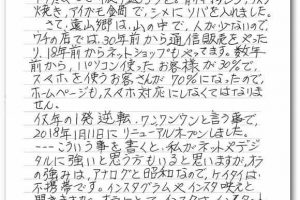 焼き、アイガモ釜町で、シメにソバを入れました。
さて、葉山郷は、山の中で、人が少ないので、
ワイの店では、30年前から通信販売をやった
り、18年前からネットショップもやってます。数年
前から、パソコン使ったお客様が30%で、
スマホを使うお客さんが70%になったので、
ホームページも、スマホ対応にしなくてはなりま
せん。
伏年の1発逆転、ワンワンワンと言う事で、
2018年1月11日にリニューアルオープンしました。
----こういう事を書くと、私がネットやデジ
タルに強いと思う方もいると思いますが、オラ
の強みは、アナログと昭和なので、ケイタイは、
不携帯です。インスタグラムやインスタ映えと